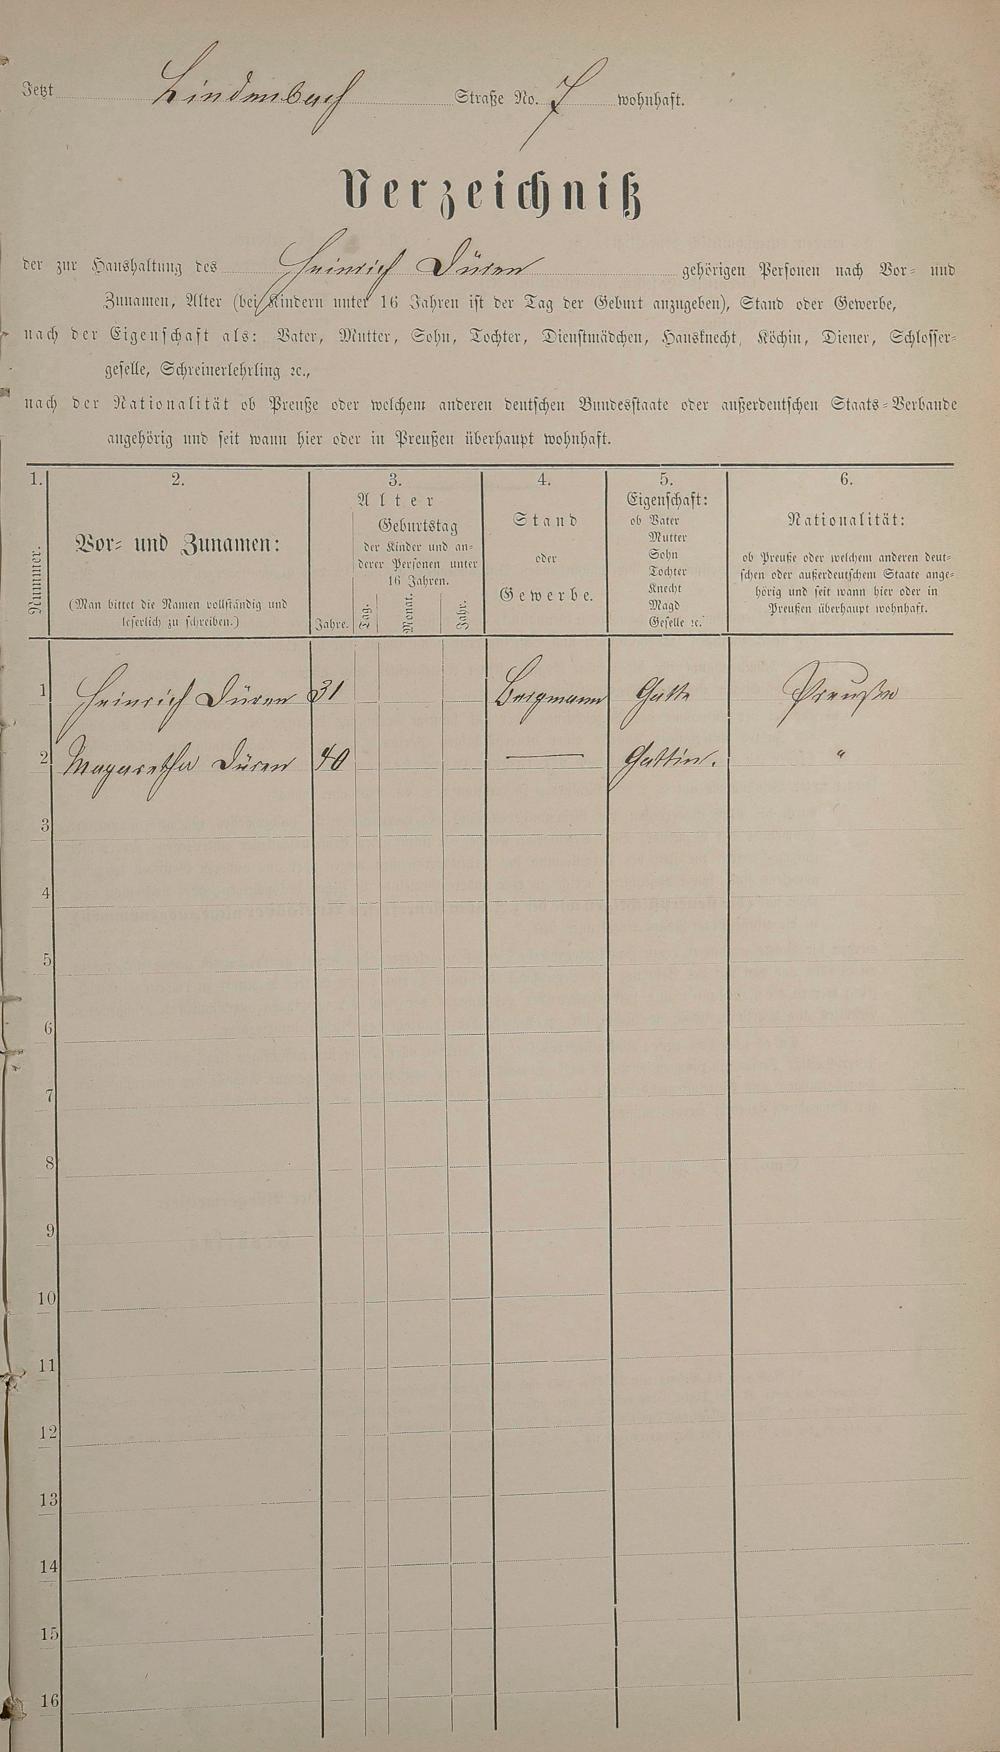 Jetzt Lindenbach Straße No. 7 wohnhaft.
Verzeichniß
der zur Haushaltung des Heinrich Düren gehörigen Personen nach Vor- und
Zunamen, Alter (bei Kindern unter 16 Jahren ist der Tag der Geburt anzugeben), Stand oder Gewerbe,
nach der Eigenschaft als: Vater, Mutter, Sohn, Tochter, Dienstmädchen, Hausknecht, Köchin, Diener, Schlosser-
geselle, Schreinerlehrling ꝛc.,
nach der Nationalität ob Preuße oder welchem anderen deutschen Bundesstaate oder außerdeutschen Staats-Verbande
angehörig und seit wann hier oder in Preußen überhaupt wohnhaft.
1. 2. 3. 4. 5. 6.
Nummer.
Vor- und Zunamen:
(Man bittet die Namen vollständig und
leserlich zu schreiben.)
Alter
Jahre.
Geburtstag
der Kinder und an-
derer Personen unter
16 Jahren.
Tag. Monat. Jahr.
Stand
oder
Gewerbe.
Eigenschaft:
ob Vater
Mutter
Sohn
Tochter
Knecht
Magd
Geselle ꝛc.
Nationalität:
ob Preuße oder welchem anderen deut-
schen oder außerdeutschem Staate ange-
hörig und seit wann hier oder in
Preußen überhaupt wohnhaft.
1 Heinrich Düren 31 Bergmann Gatte Preuße
2 Magaretha Düren 40 — Gattin. "
3
4
5
6
7
8
9
10
11
12
13
14
15
16